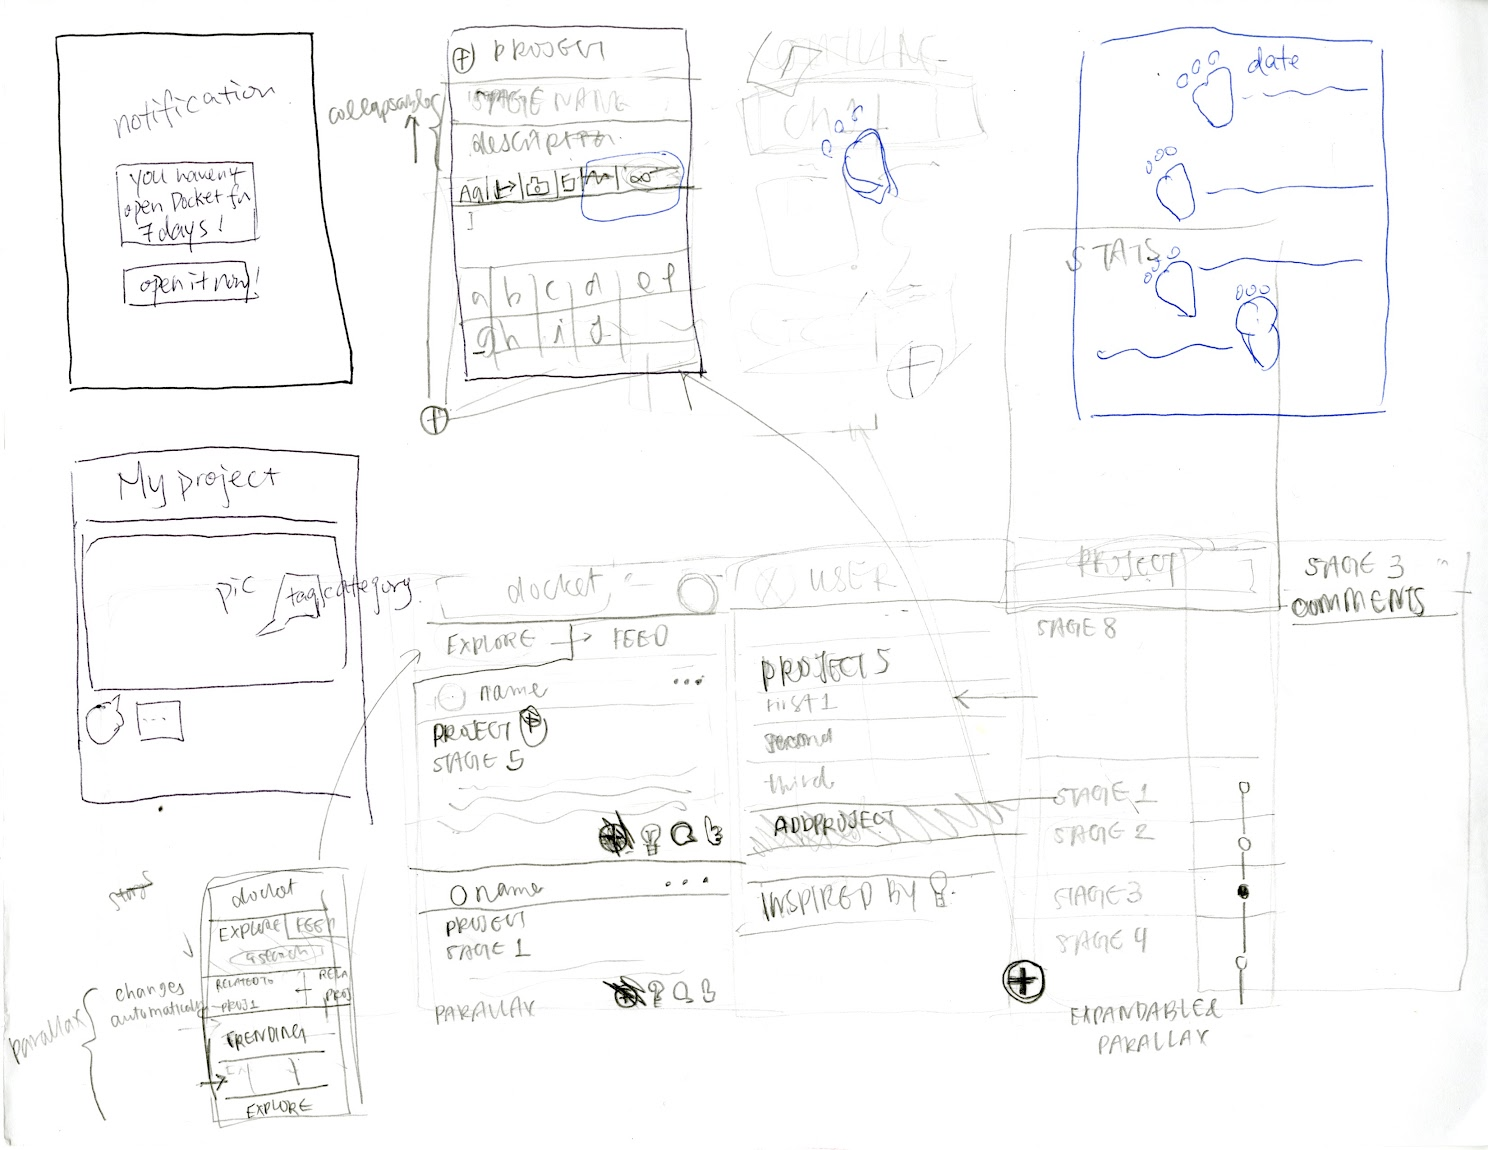 notification
you haven't
open Docket for
7 days!
open it now!
collapsable
PROJECT
STAGE NAME
description
Aa
a b c d e f
g h i j
chat
date
STATS
My project
pic
tag category
docket
EXPLORE
FEED
name
...
PROJECT
STAGE 5
name
...
PROJECT
STAGE 1
PARALLAX
USER
PROJECT 5
first 1
second
third
ADD PROJECT
INSPIRED BY
PROJECT
STAGE 8
STAGE 1
STAGE 2
STAGE 3
STAGE 4
EXPANDABLE &
PARALLAX
STAGE 3
COMMENTS
docket
EXPLORE FEED
search
RELATED TO
PROJ 1
RELA
PROJ
TRENDING
EXPLORE
changes
automatically
parallax